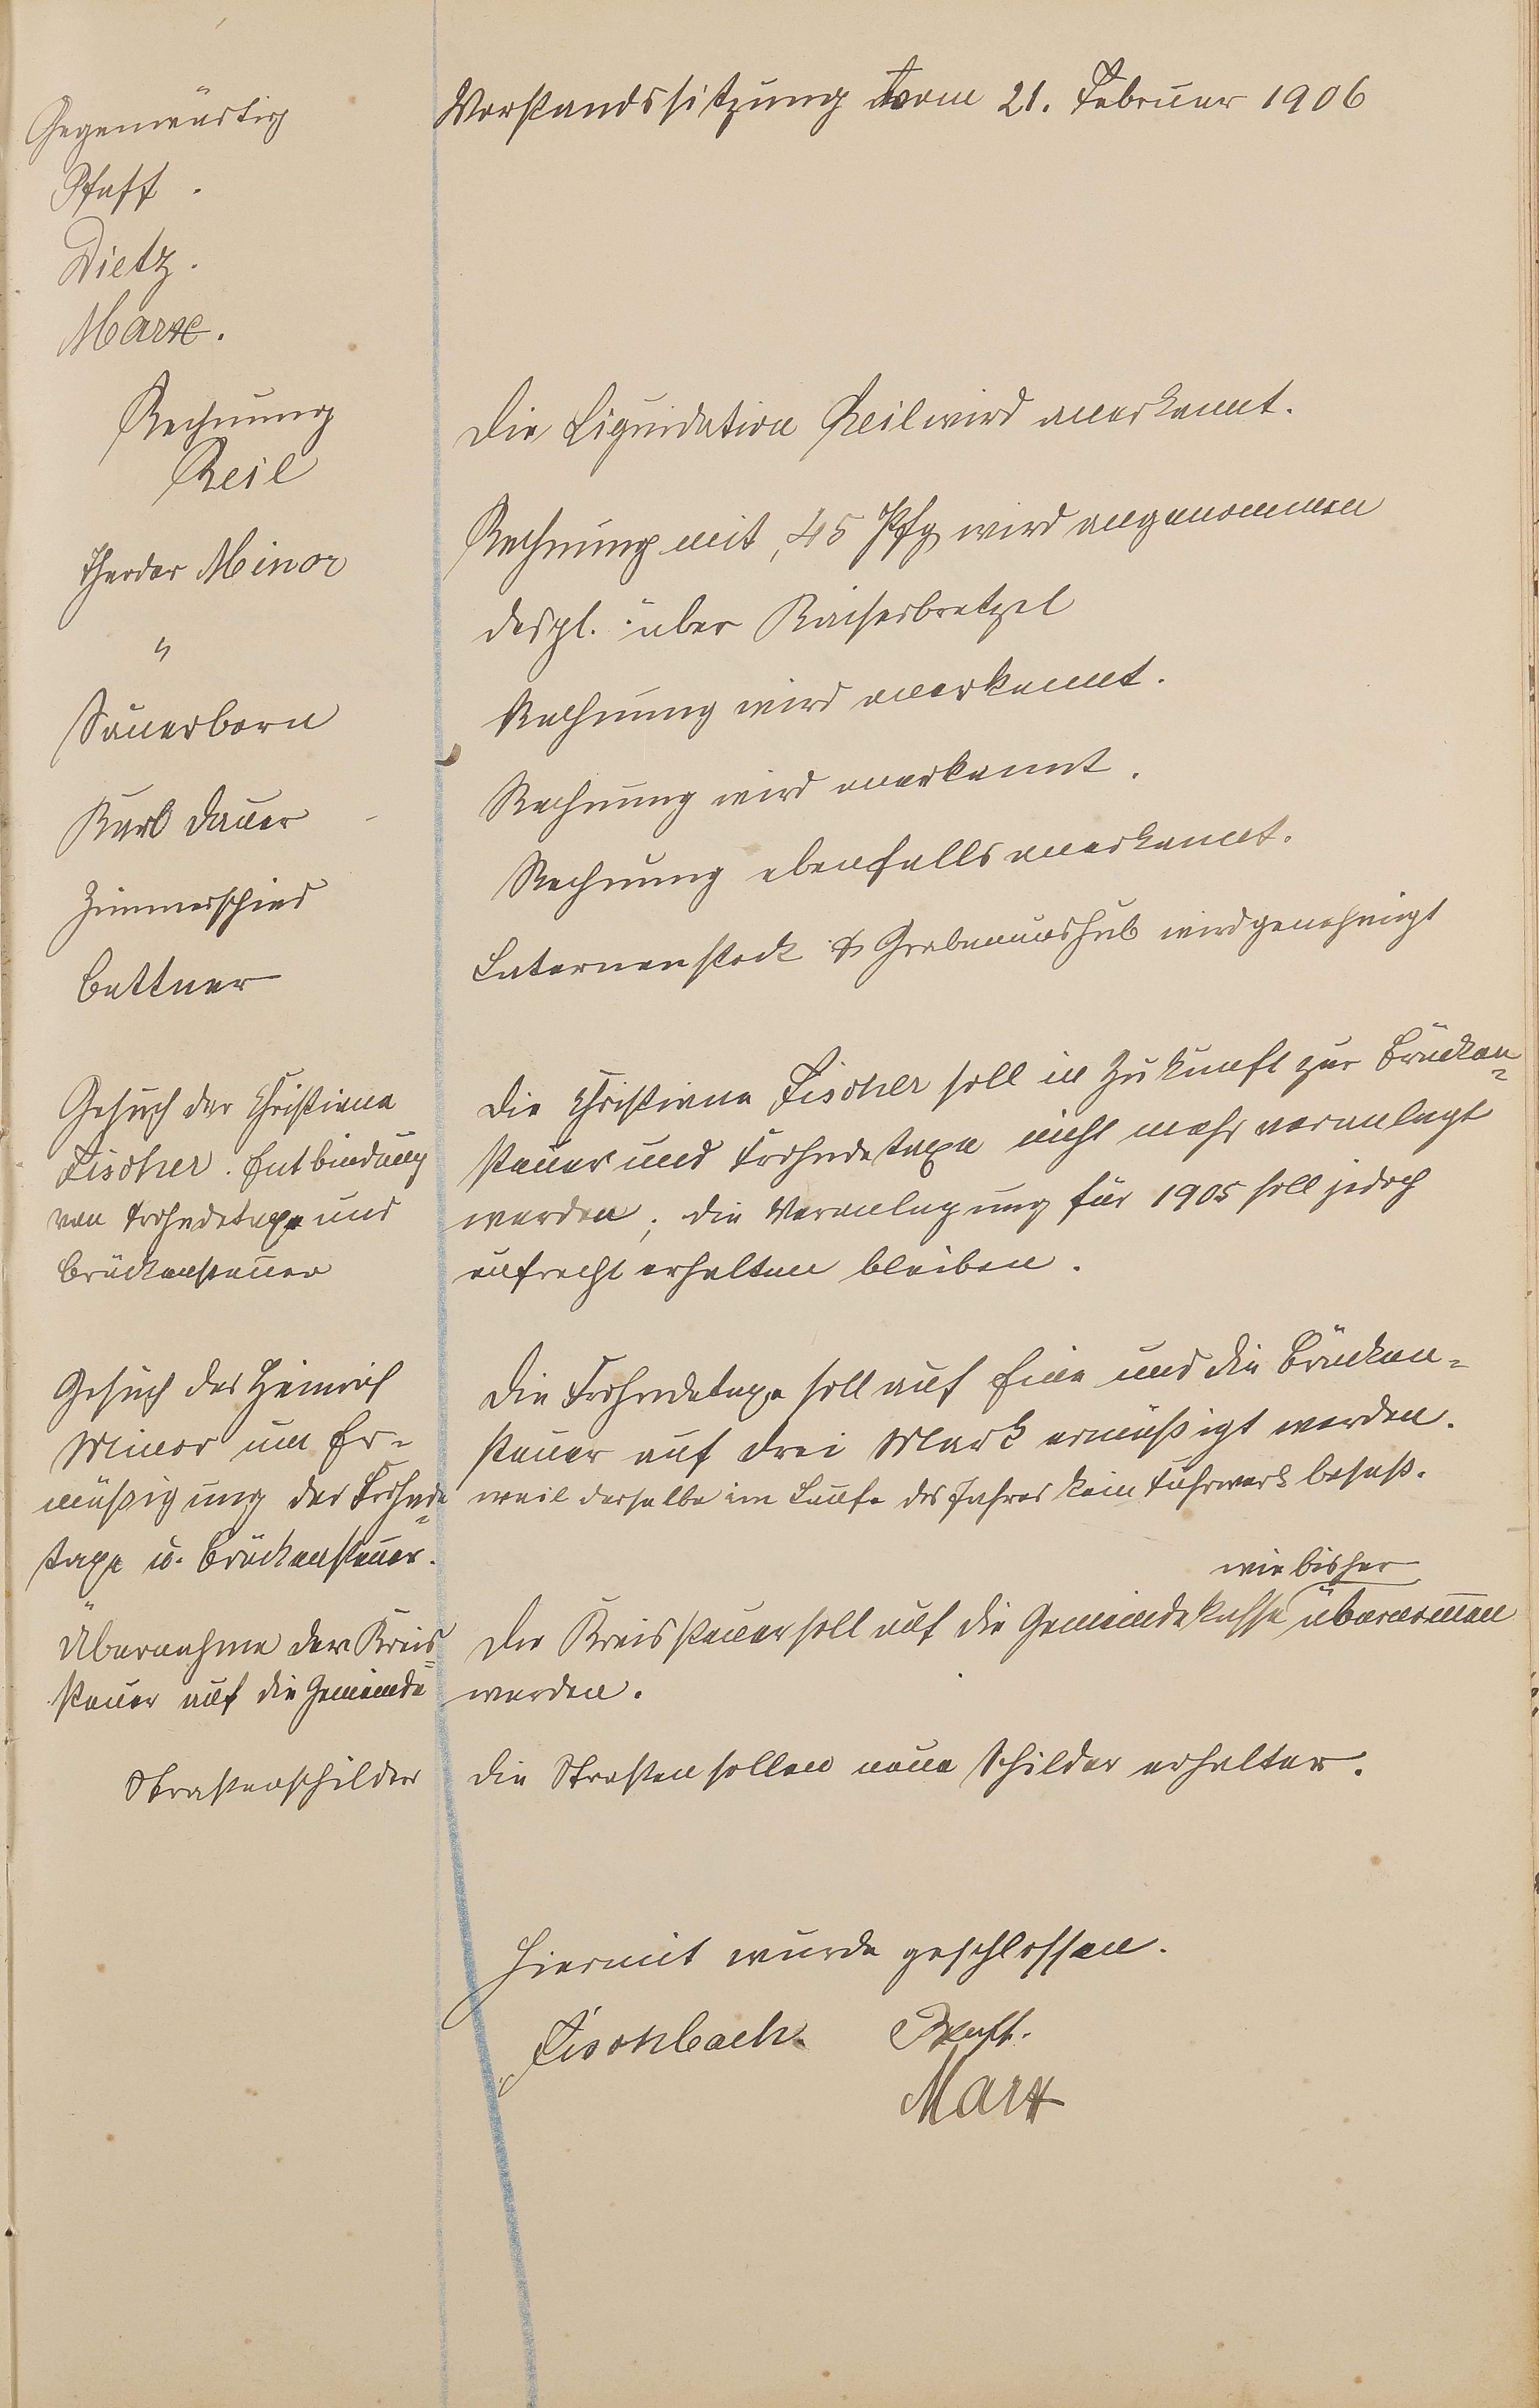 Vorstandssitzung vom 21. Februar 1906
Gegenwärtig
Pfaff.
Dietz.
Marx.
Rechnung
Reil
Die Liquidation Reil wird anerkannt.
Theodor Minor
Rechnung mit ,45 Pfg wird angenommen
"
desgl. über Kaiserbretzel
Sauerborn
Rechnung wird anerkannt.
Karl Dauer
Rechnung wird anerkannt.
Zimmerschied
Rechnung ebenfalls anerkannt.
Bettner
Laternenstock & Grabenaushub wird genehmigt
Gesuch der Christiane
Fischer. Entbindung
von Frohndetaxe und
Brückensteuer
Die Christiane Fischer soll in Zukunft zur Brücken-
steuer und Frohndetaxe nicht mehr veranlagt
werden; die Veranlagung für 1905 soll jedoch
aufrecht erhalten bleiben.
Gesuch des Heinrich
Minor um Er-
mäßigung der Frohnde-
taxe u. Brückensteuer.
Die Frohndetaxe soll auf Eine und die Brücken-
steuer auf drei Mark ermäßigt werden.
weil derselbe im Laufe des Jahres kein Fuhrwerk besaß.
Übernahme der Kreis-
steuer auf die Gemeinde
wie bisher
Die Kreissteuer soll auf die Gemeindekasse übernommen
werden.
Strassenschilder
Die Strassen sollen neue Schilder erhalten.
Hiermit wurde geschlossen.
Fischbach. Pfaff.
Marx